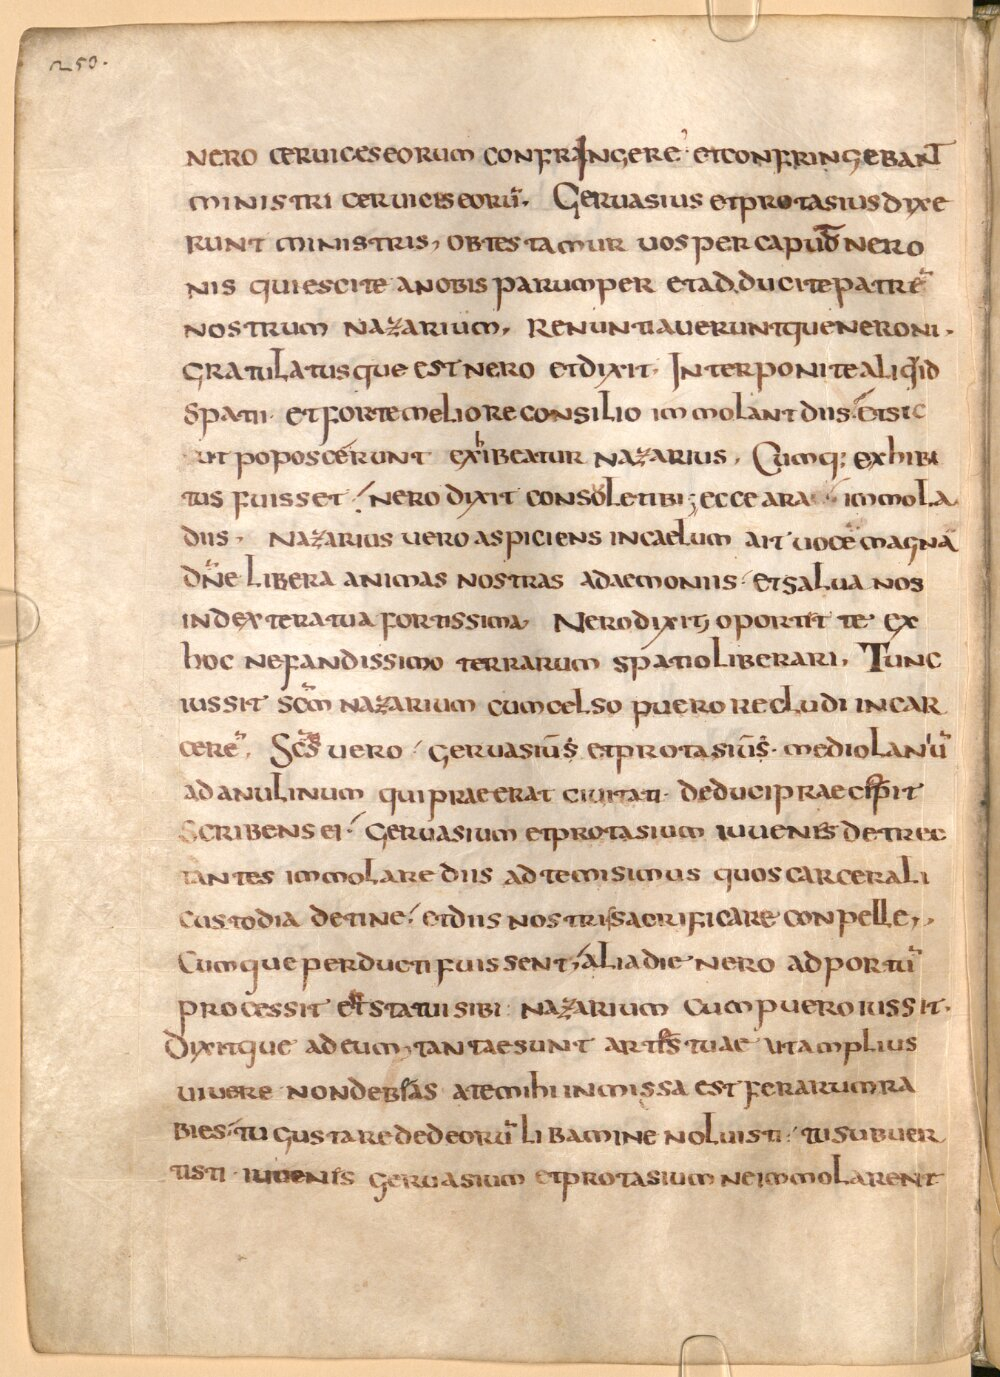 250.
nero cervices eorum confringere et confringebant
ministri cervicis eorū. Gervasius et protasius dixe
runt ministris, obtestamur vos per capud nero
nis quiescite a nobis parumper et adducite patrē
nostrum nazarium, Renuntiaveruntque neroni.
Gratulatusque est nero et dixit. Interponite aliquid
spatii. et forte meliore consilio immolant diis. et sic
ut poposcerunt exhibeatur nazarius. Cumq; exhibi
tus fuisset nero dixit consoletibi; ecce ara immola
diis. Nazarius vero aspiciens in caelum ait voce magnā
dn̄e libera animas nostras a daemoniis. et salva nos
in dextera tua fortissima. Nero dixit, oportet te ex
hoc nefandissimo terrarum spatio liberari. Tunc
iussit scm̄ nazarium cum celso puero recludi in car
cerē. Scs̄ vero gervasiūs et protasiūs. mediolanū
ad anulinum qui praeerat civitati. deduci praecepit
Scribens ei. Gervasium et protasium iuvenis detrec
tantes immolare diis ad te misimus quos carcerali
custodia detine. et diis nostris sacrificare conpelle,,
Cumque perducti fuissent, alia die nero ad portū
processit et statui sibi nazarium cum puero iussit.
Dixitque ad eum, tantae sunt artis tuae ut amplius
vivere non debeas a te mihi inmissa est ferarum ra
bies. tu gustare de deorū libamine noluisti. tu subver
tisti iuvenis gervasium et protasium ne immolarent